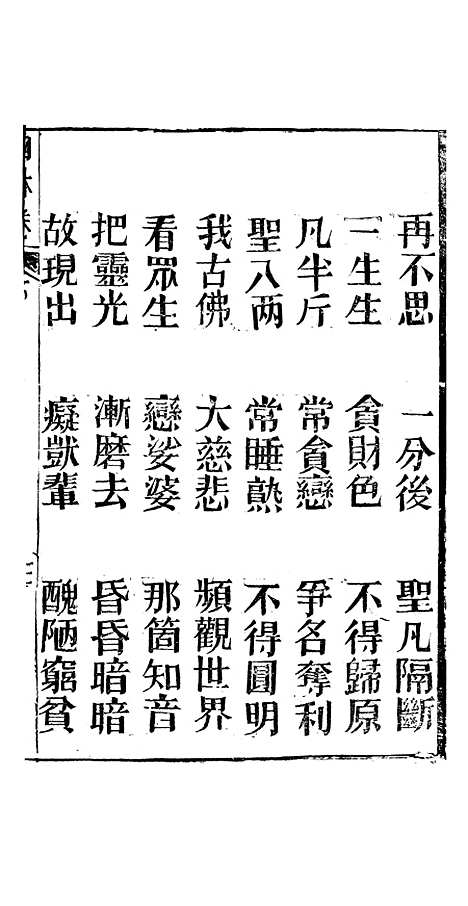 再不思 一分後 聖凡隔斷
一生生 貪財色 不得歸原
凡半斤 常貪戀 爭名奪利
聖八两 常睡熟 不得圓明
我古佛 大慈悲 頻觀世界
看眾生 戀娑婆 那箇知音
把靈光 漸磨去 昏昏暗暗
故現出 癡獃輩 醜陋窮貧